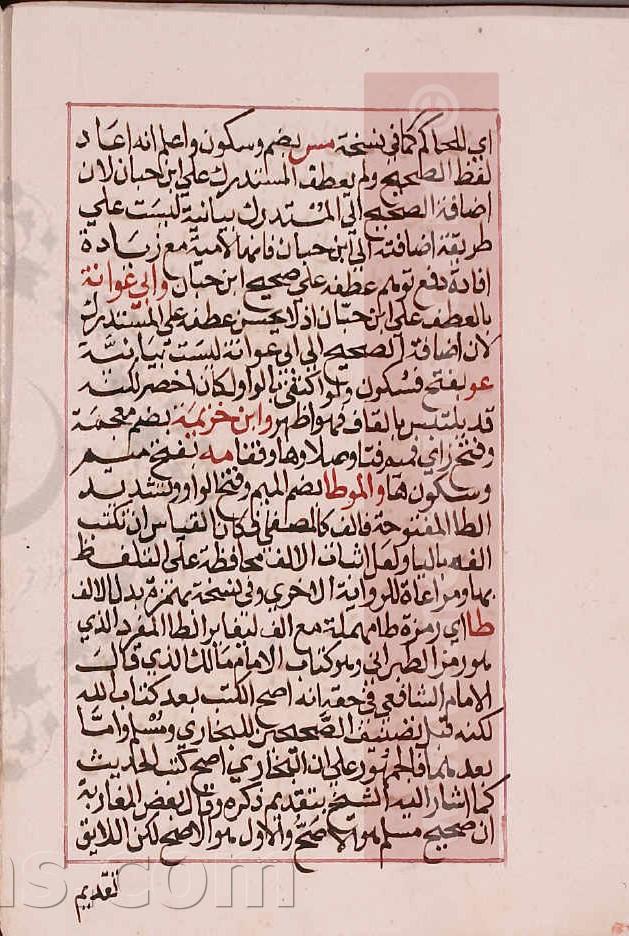 اي للحاكم كما في نسخة مس بضم وسكون واعلم انه اعاد
لفظ الصحيح ولم يعطف المستدرك على ابن حبان لان
اضافة الصحيح الى المستدرك بيانية ليست على
طريقة اضافته الى ابن حبان فانها لامية مع زيادة
افادة دفع توهم عطفه على صحيح ابن حبان وابي عوانة
بالعطف على ابن حبان اذ لا يحسن عطفه على المستدرك
لان اضافة الصحيح الى ابي عوانة ليست بيانية
عو بفتح فسكون ولو اكتفى بالواو لكان اخصر لكنه
قد يلتبس بالقاف فهو اظهر وابن خزيمة بضم معجمة
وفتح زاي فميم وتا وصلا وها وقفا مه بفتح ميم
وسكون ها والموطا بضم الميم وفتح الواو وتشديد
الطا المفتوحة فالف كالمصفى فكان القياس ان تكتب
الفه باليا ولعل اثبات الالف محافظة على التلفظ
بها ومراعاة للرواية الاخرى وفي نسخة بهمزة بدل الالف
طا اي رمزه طا مهملة مع الف ليغاير الطا المفرد الذي
هو رمز الطبراني وهو كتاب الامام مالك الذي قال
الامام الشافعي في حقه انه اصح الكتب بعد كتاب الله
لكنه قبل تصنيف الصحيحين للبخاري ومسلم واما
بعدهما فالجمهور على ان البخاري اصح كتب الحديث
كما اشار اليه الشيخ بتقديم ذكره وقال بعض المغاربة
ان صحيح مسلم هو الاصح والاول هو الاصح لكن اللايق
تقديم
ns.com